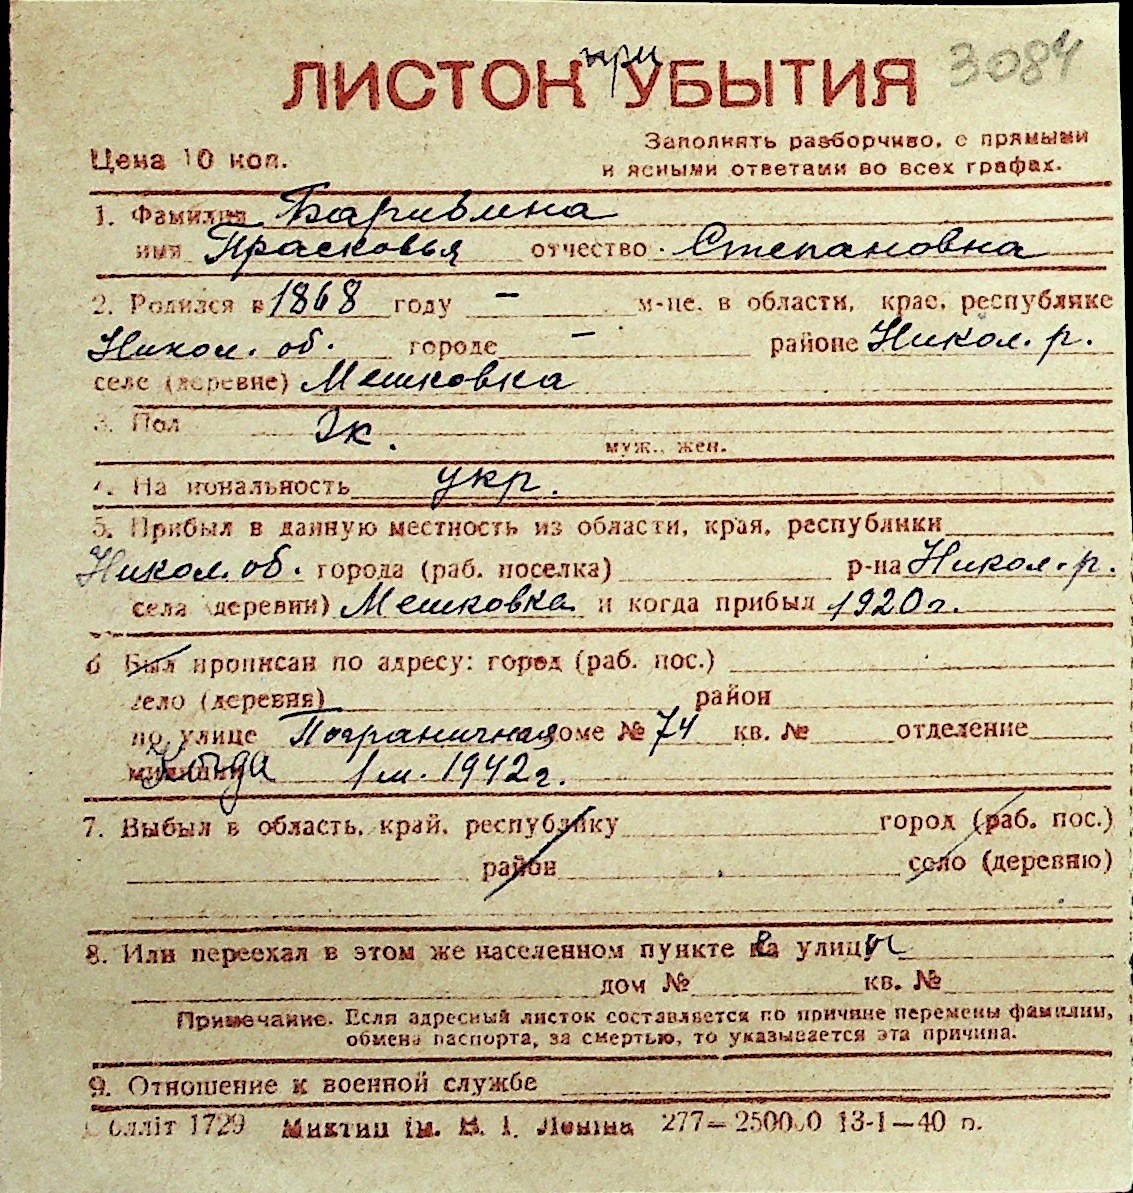 при
ЛИСТОК УБЫТИЯ 3084
Цена 10 коп.
Заполнять разборчиво, с прямыми
и ясными ответами во всех графах.
1. Фамилия Баривлина
имя Прасковья отчество Степановна
2. Родился в 1868 году — м-це, в области, крае, республике
Никол. об. городе — районе Никол. р.
селе (деревне) Мешковка
3. Пол ж.
муж., жен.
4. Национальность укр.
5. Прибыл в данную местность из области, края, республики
Никол. об. города (раб. поселка) р-на Никол. р.
села (деревни) Мешковка и когда прибыл 1920 г.
6 Был прописан по адресу: город (раб. пос.)
село (деревня) район
по улице Пограничная доме № 74 кв. № отделение
милиции Когда 1/III. 1942 г.
7. Выбыл в область, край, республику город (раб. пос.)
район село (деревню)
8. Или переехал в этом же населенном пункте на улицы
дом № кв. №
Примечание. Если адресный листок составляется по причине перемены фамилии,
обмена паспорта, за смертью, то указывается эта причина.
9. Отношение к военной службе
Облліт 1729 Миктип ім. В. І. Леніна 277—250000 13-1—40 р.